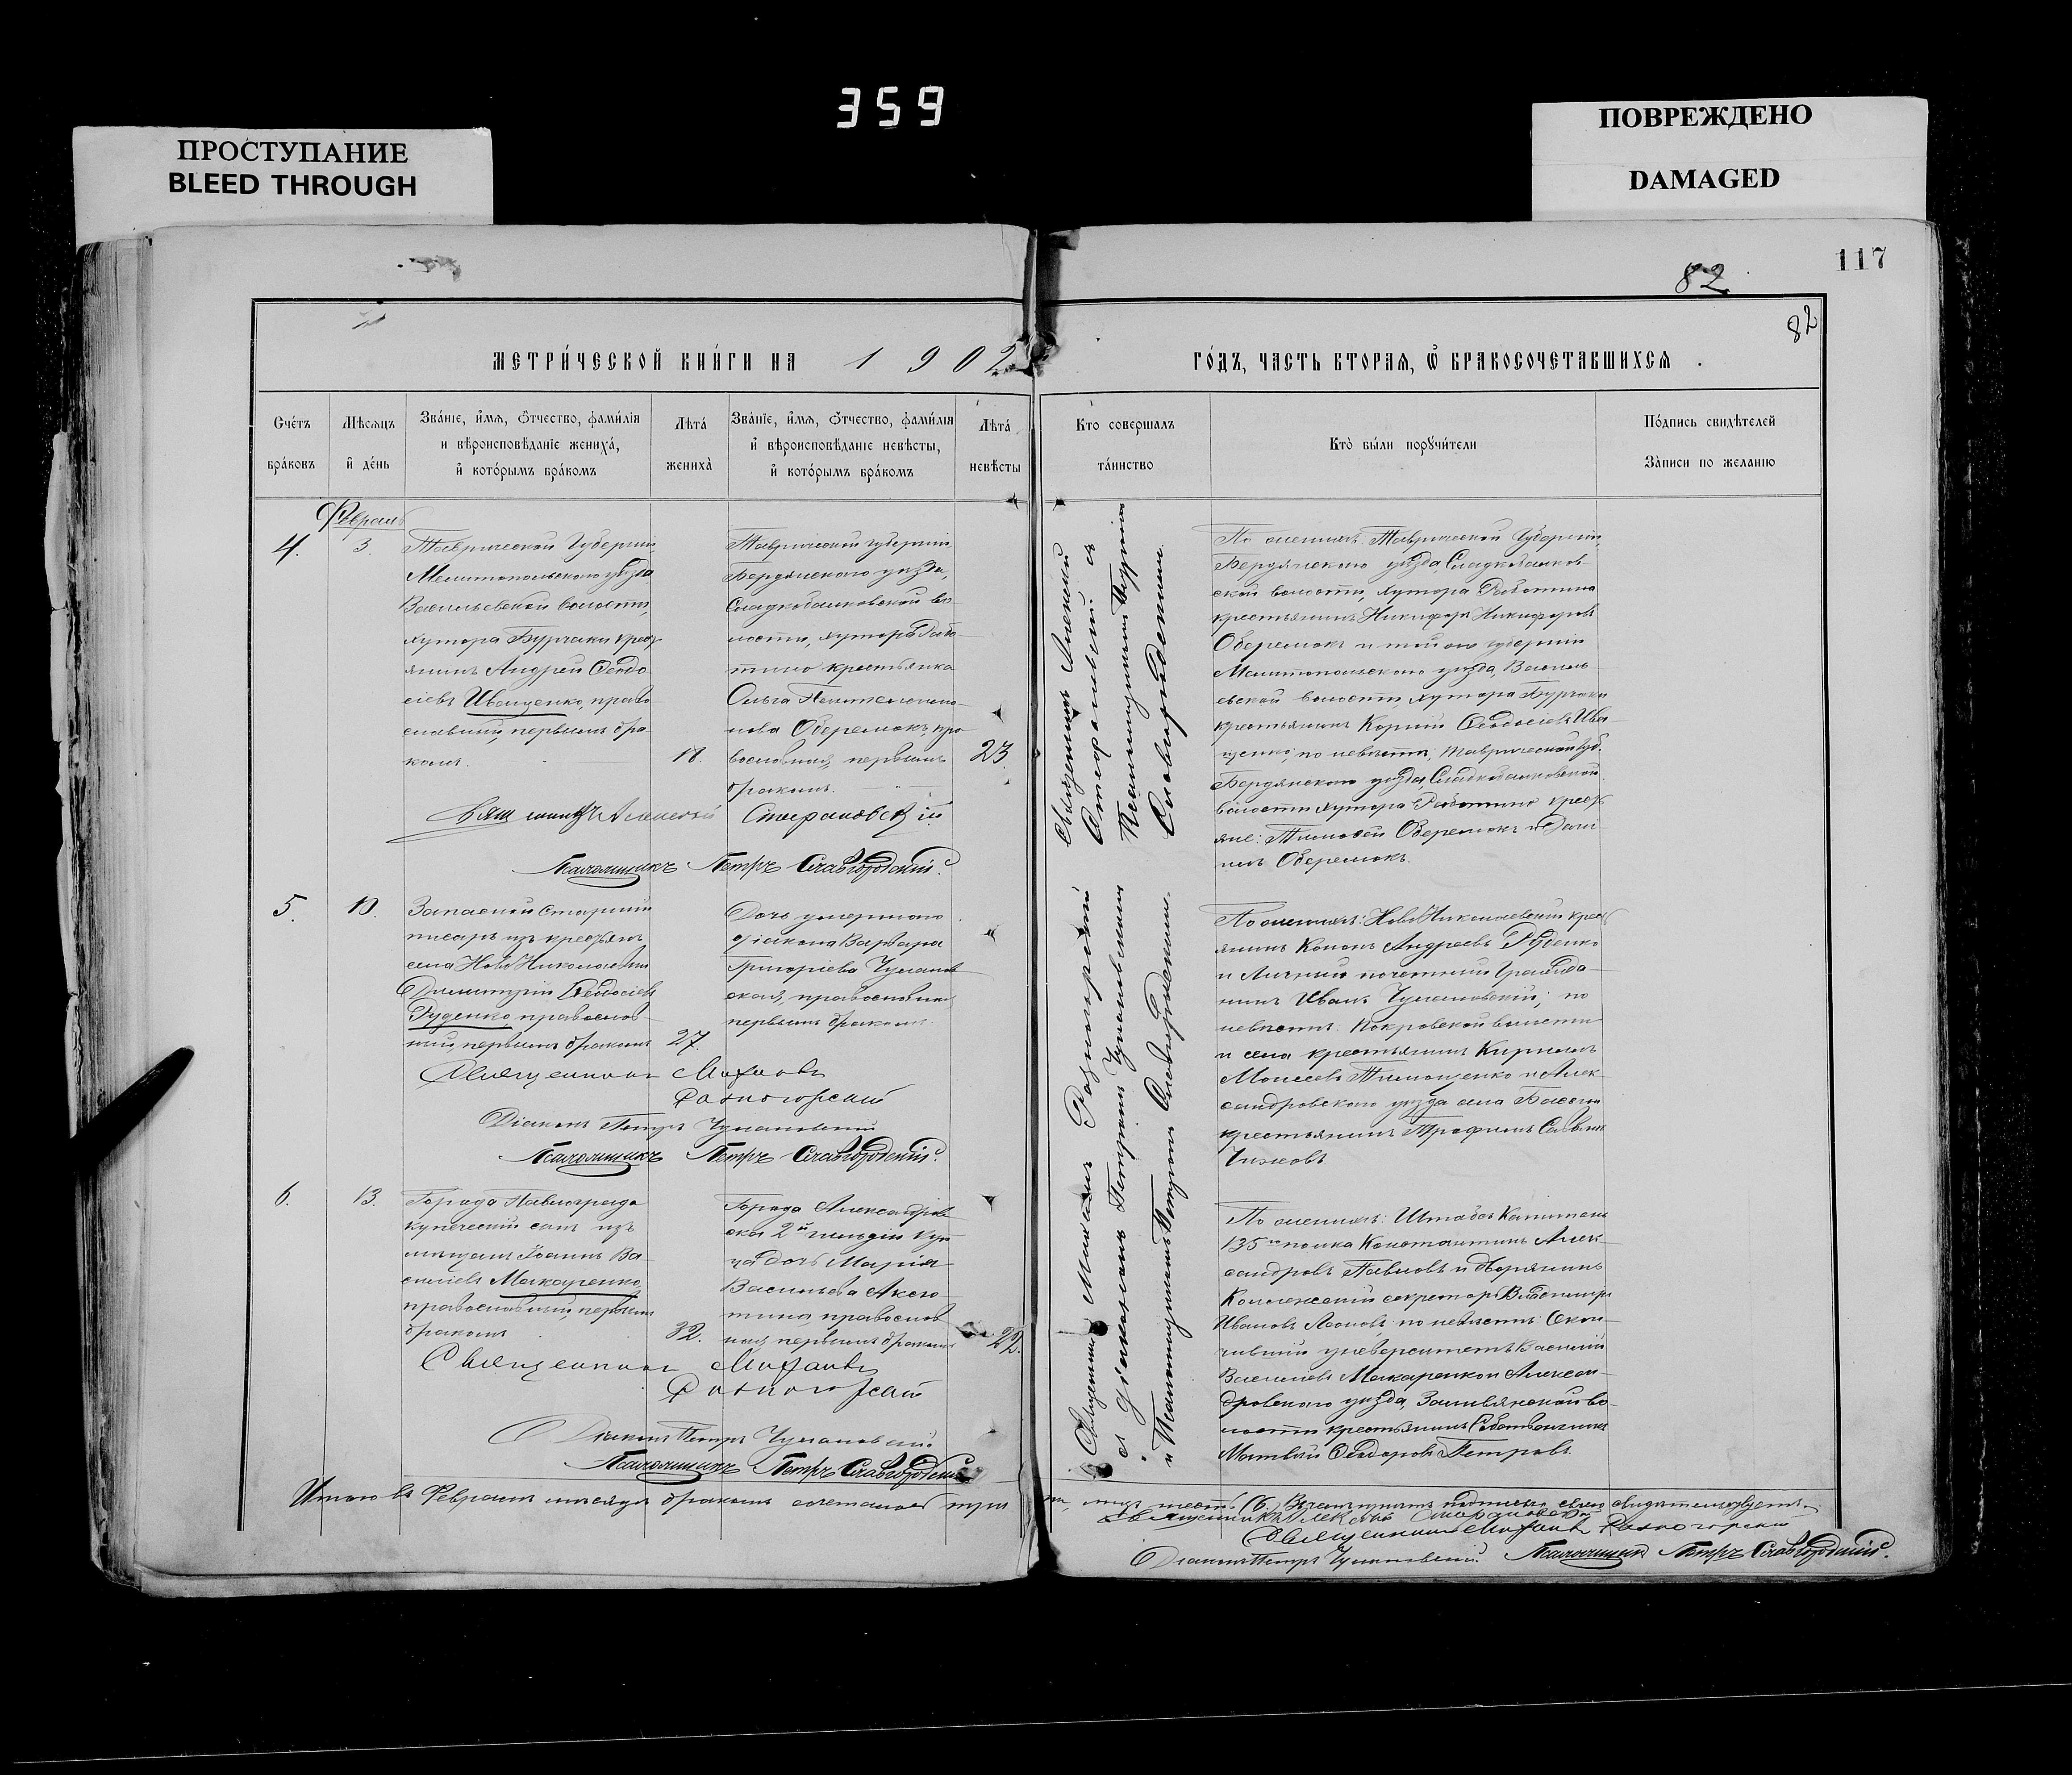 359
ПРОСТУПАНИЕ
BLEED THROUGH
ПОВРЕЖДЕНО
DAMAGED
117
82
82
МЕТРИ́ЧЕСКОЙ КНИ́ГИ НА 1902
ГО́ДЪ, ЧАСТЬ ВТОРАЯ, Ѿ БРАКОСОЧЕТАВШИХСЯ.
Сче́тъ
бра́ковъ
Мѣсяцъ
и҆ де́нь
Зва́нїе, и҆́мя, ѻ҆́тчество, фами́лїя
и вѣроисповѣ́данїе жениха̀,
и҆ кото́рымъ бра́комъ
Лѣта́
жениха̀
Зва́нїе, и҆́мя, ѻ҆́тчество, фами́лїя
и҆ вѣроисповѣ́данїе невѣ́сты,
и҆ кото́рымъ бра́комъ
Лѣта́
невѣ́сты
Кто соверша́лъ
та́инство
Кто̀ бы́ли порꙋчи́тели
По́дпись свидѣ́телей
За̀писи по жела́нїю
Февраль
4.
3.
Таврической Губерніи,
Мелитопольскаго уѣзда
Васильевской волости,
хутора Бурчаки крест
янинъ Андрей Ѳеодо
сіевъ Иващенко, право
славный, первымъ бра
комъ.
18.
Таврической губерніи,
Бердянскаго уѣзда,
Сладкобалковской во
лости, хутора Рабо
тино крестьянка
Ольга Пантелеимо
нова Оберемокъ, пра
вославная, первымъ
бракомъ.
23.
Священникъ Алексѣй
Стефановскій съ
Псаломщикомъ Петромъ
Славгородскимъ.
По женихѣ: Таврической Губерніи,
Бердянскаго уѣзда, Сладкобалков
ской волости, хутора Работино
крестьянинъ Никифоръ Никифоровъ
Оберемокъ и той же губерніи
Мелитопольскаго уѣзда, Василь
евской волости хутора Бурчаки
крестьянинъ Корній Ѳеодосіевъ Ива
щенко; по невѣстѣ: Таврической Губ.
Бердянскаго уѣзда, Сладкобалковской
волости хутора Работино крест
яне: Тимоѳей Оберемокъ и Дани
илъ Оберемокъ.
Священникъ Алексѣй Стефановскій
Псаломщикъ Петръ Славгородскій.
5.
10.
Запасный Старшій
писарь изъ крестьянъ
села Ново Николаевки
Димитрій Ѳеодосіевъ
Руденко, православ
ный, первымъ бракомъ
27.
Дочь умершаго
діакона Варвара
Григоріева Чуланов
ская, православная,
первымъ бракомъ.
Священникъ Михаилъ Разногорскій
съ діакономъ Петромъ Чулановскимъ
и Псаломщикомъ Петромъ Славгородскимъ.
По женихѣ: Ново Николаевскій крест
янинъ Кононъ Андреевъ Руденко
и Личный почетный Гражда
нинъ Иванъ Чулановскій; по
невѣстѣ: Покровской волости
и села крестьянинъ Кириллъ
Моисеевъ Тимощенко и Алек
сандровскаго уѣзда села
крестьянинъ Трофимъ
Чижовъ
Священникъ Михаилъ
Разногорскій
Діаконъ Петръ Чулановскій
Псаломщикъ Петръ Славгородскій.
6.
13.
Города Павлограда
купеческій сынъ изъ
мѣщанъ Іоаннъ Ва
сильевъ Макаренко,
православный, первымъ
бракомъ
32.
Города Александров
ска 2й гильдіи Куп
ца дочь Марія
Васильева Аксю
тина, православ
ная, первымъ бракомъ
22.
По женихѣ: Штабсъ Капитанъ
135го полка Константинъ Алек
сандровъ Павловъ и дворянинъ
Коллежскій секретарь Владимиръ
Ивановъ Леоновъ; по невѣстѣ: Окон
чившій университетъ Василій
Васильевъ Макаренко и Алексан
дровскаго уѣзда, во
лости крестьянинъ Собственникъ
Матвѣй Ѳеодоровъ Петровъ
Священникъ Михаилъ
Разногорскій
Діаконъ Петръ Чулановскій
Псаломщикъ Петръ Славгородскій
Итого въ Февралѣ мѣсяцѣ бракомъ сочеталось три
лицъ шесть (6). Въ чемъ подписью своею свидѣтельствуемъ
Священникъ Алексѣй Стефановскій
Священникъ Михаилъ Разногорскій
Діаконъ Петръ Чулановскій. Псаломщикъ Петръ Славгородскій.